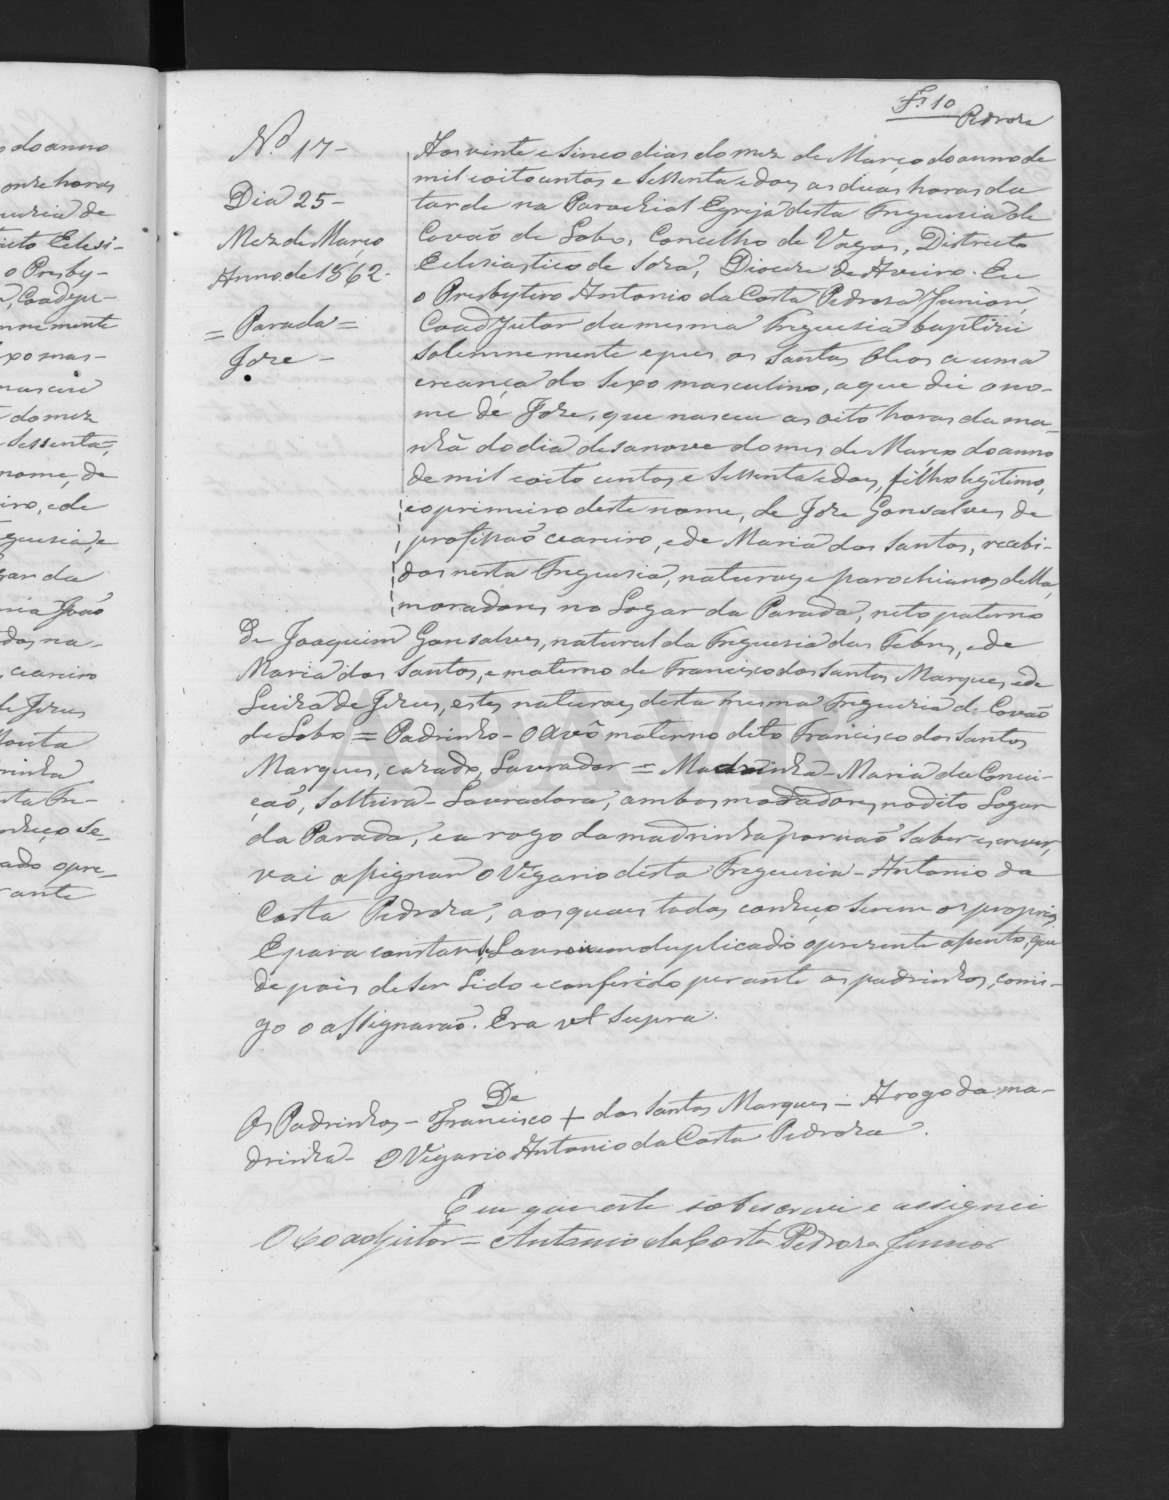 Fs 10
Pedroza
Nº 17-
Dia 25-
Mez de Março
Anno de 1862-
= Parada =
Joze -
Aos vinte e sinco dias do mez de Março do anno de
mil e oito centos e sessenta e dois as duas horas da
tarde na Parochial Egreja desta Freguesia de
Covão de Lobo, Concelho de Vagos, Districto
Eclesiastico de Soza, Diocese de Aveiro. Eu
o Presbytero Antonio da Costa Pedroza Junior,
Coadjutor da mesma Freguesia baptizei
solemnemente e pus os santos oleos a uma
creança do sexo masculino, a que dei o no-
me de Joze, que nasceu as oito horas da ma-
nhã do dia desanove do mes de Março do anno
de mil e oito centos e sessenta e dois, filho legitimo,
e o primeiro deste nome, de Joze Gonsalves de
profissão ceareiro, e de Maria dos Santos, recebi-
dos nesta Freguesia, naturaes e parochianos della,
moradores no Logar da Parada, neto paterno
de Joaquim Gonsalves, natural da Freguesia das Febres, e de
Maria dos Santos, e materno de Francisco dos Santos Marques, e de
Luiza de Jesus, estes naturaes desta mesma Freguezia de Covão
de Lobo = Padrinho - O avô materno dito Francisco dos Santos
Marques, cazado, Lavrador = Madrinha - Maria da Concei-
ção, Solteira - Lavradora, ambos moradores no dito Logar
da Parada, e a rogo da madrinha por não saber escrever,
vai assignar o Vigario desta Freguesia - Antonio da
Costa Pedroza, aos quaes todos conheço serem os proprios
E para constar Lavrei em duplicado o prezente assento, que
depois de ser Lido e conferido perante os padrinhos, comi-
go o assignarão. Era ut supra.
De
Os Padrinhos - Francisco + dos Santos Marques - A rogo da ma-
drinha - O Vigario Antonio da Costa Pedroza.
E eu que este sobscrevi e assignei
O Coadjutor = Antonio da Costa Pedroza Junior